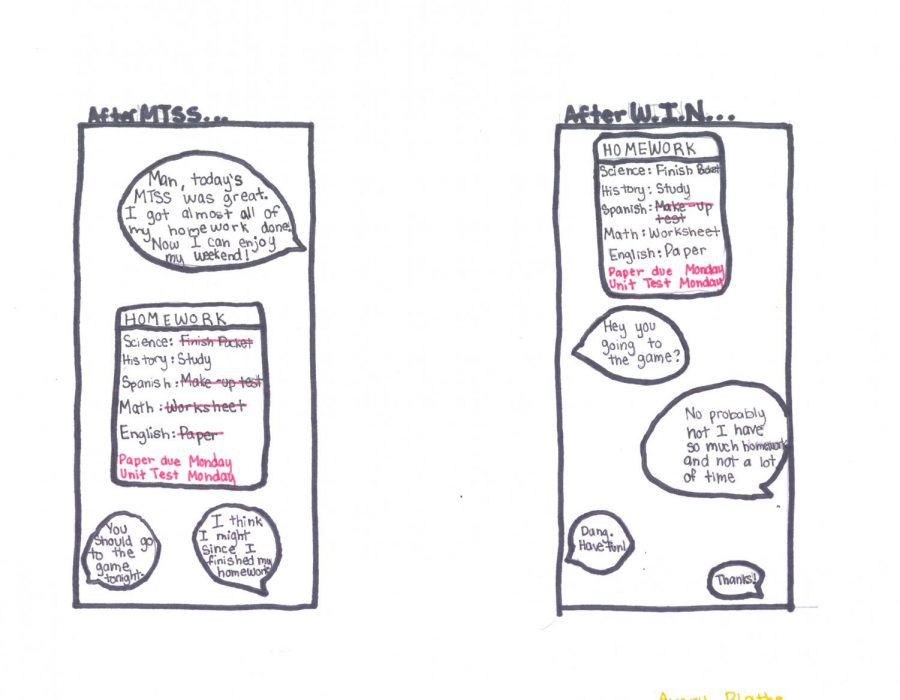 After MTSS...
Man, today's
MTSS was great.
I got almost all of
my homework done.
Now I can enjoy
my weekend!
HOMEWORK
Science: Finish Packet
History: Study
Spanish: Make-up test
Math: Worksheet
English: Paper
Paper due Monday
Unit Test Monday
You
should go
to the
game
tonight.
I think
I might
since I
finished my
homework
After W.I.N...
HOMEWORK
Science: Finish Packet
History: Study
Spanish: Make-up
test
Math: Worksheet
English: Paper
Paper due Monday
Unit Test Monday
Hey you
going to
the game?
No probably
not I have
so much homework
and not a lot
of time
Dang.
Have fun!
Thanks!